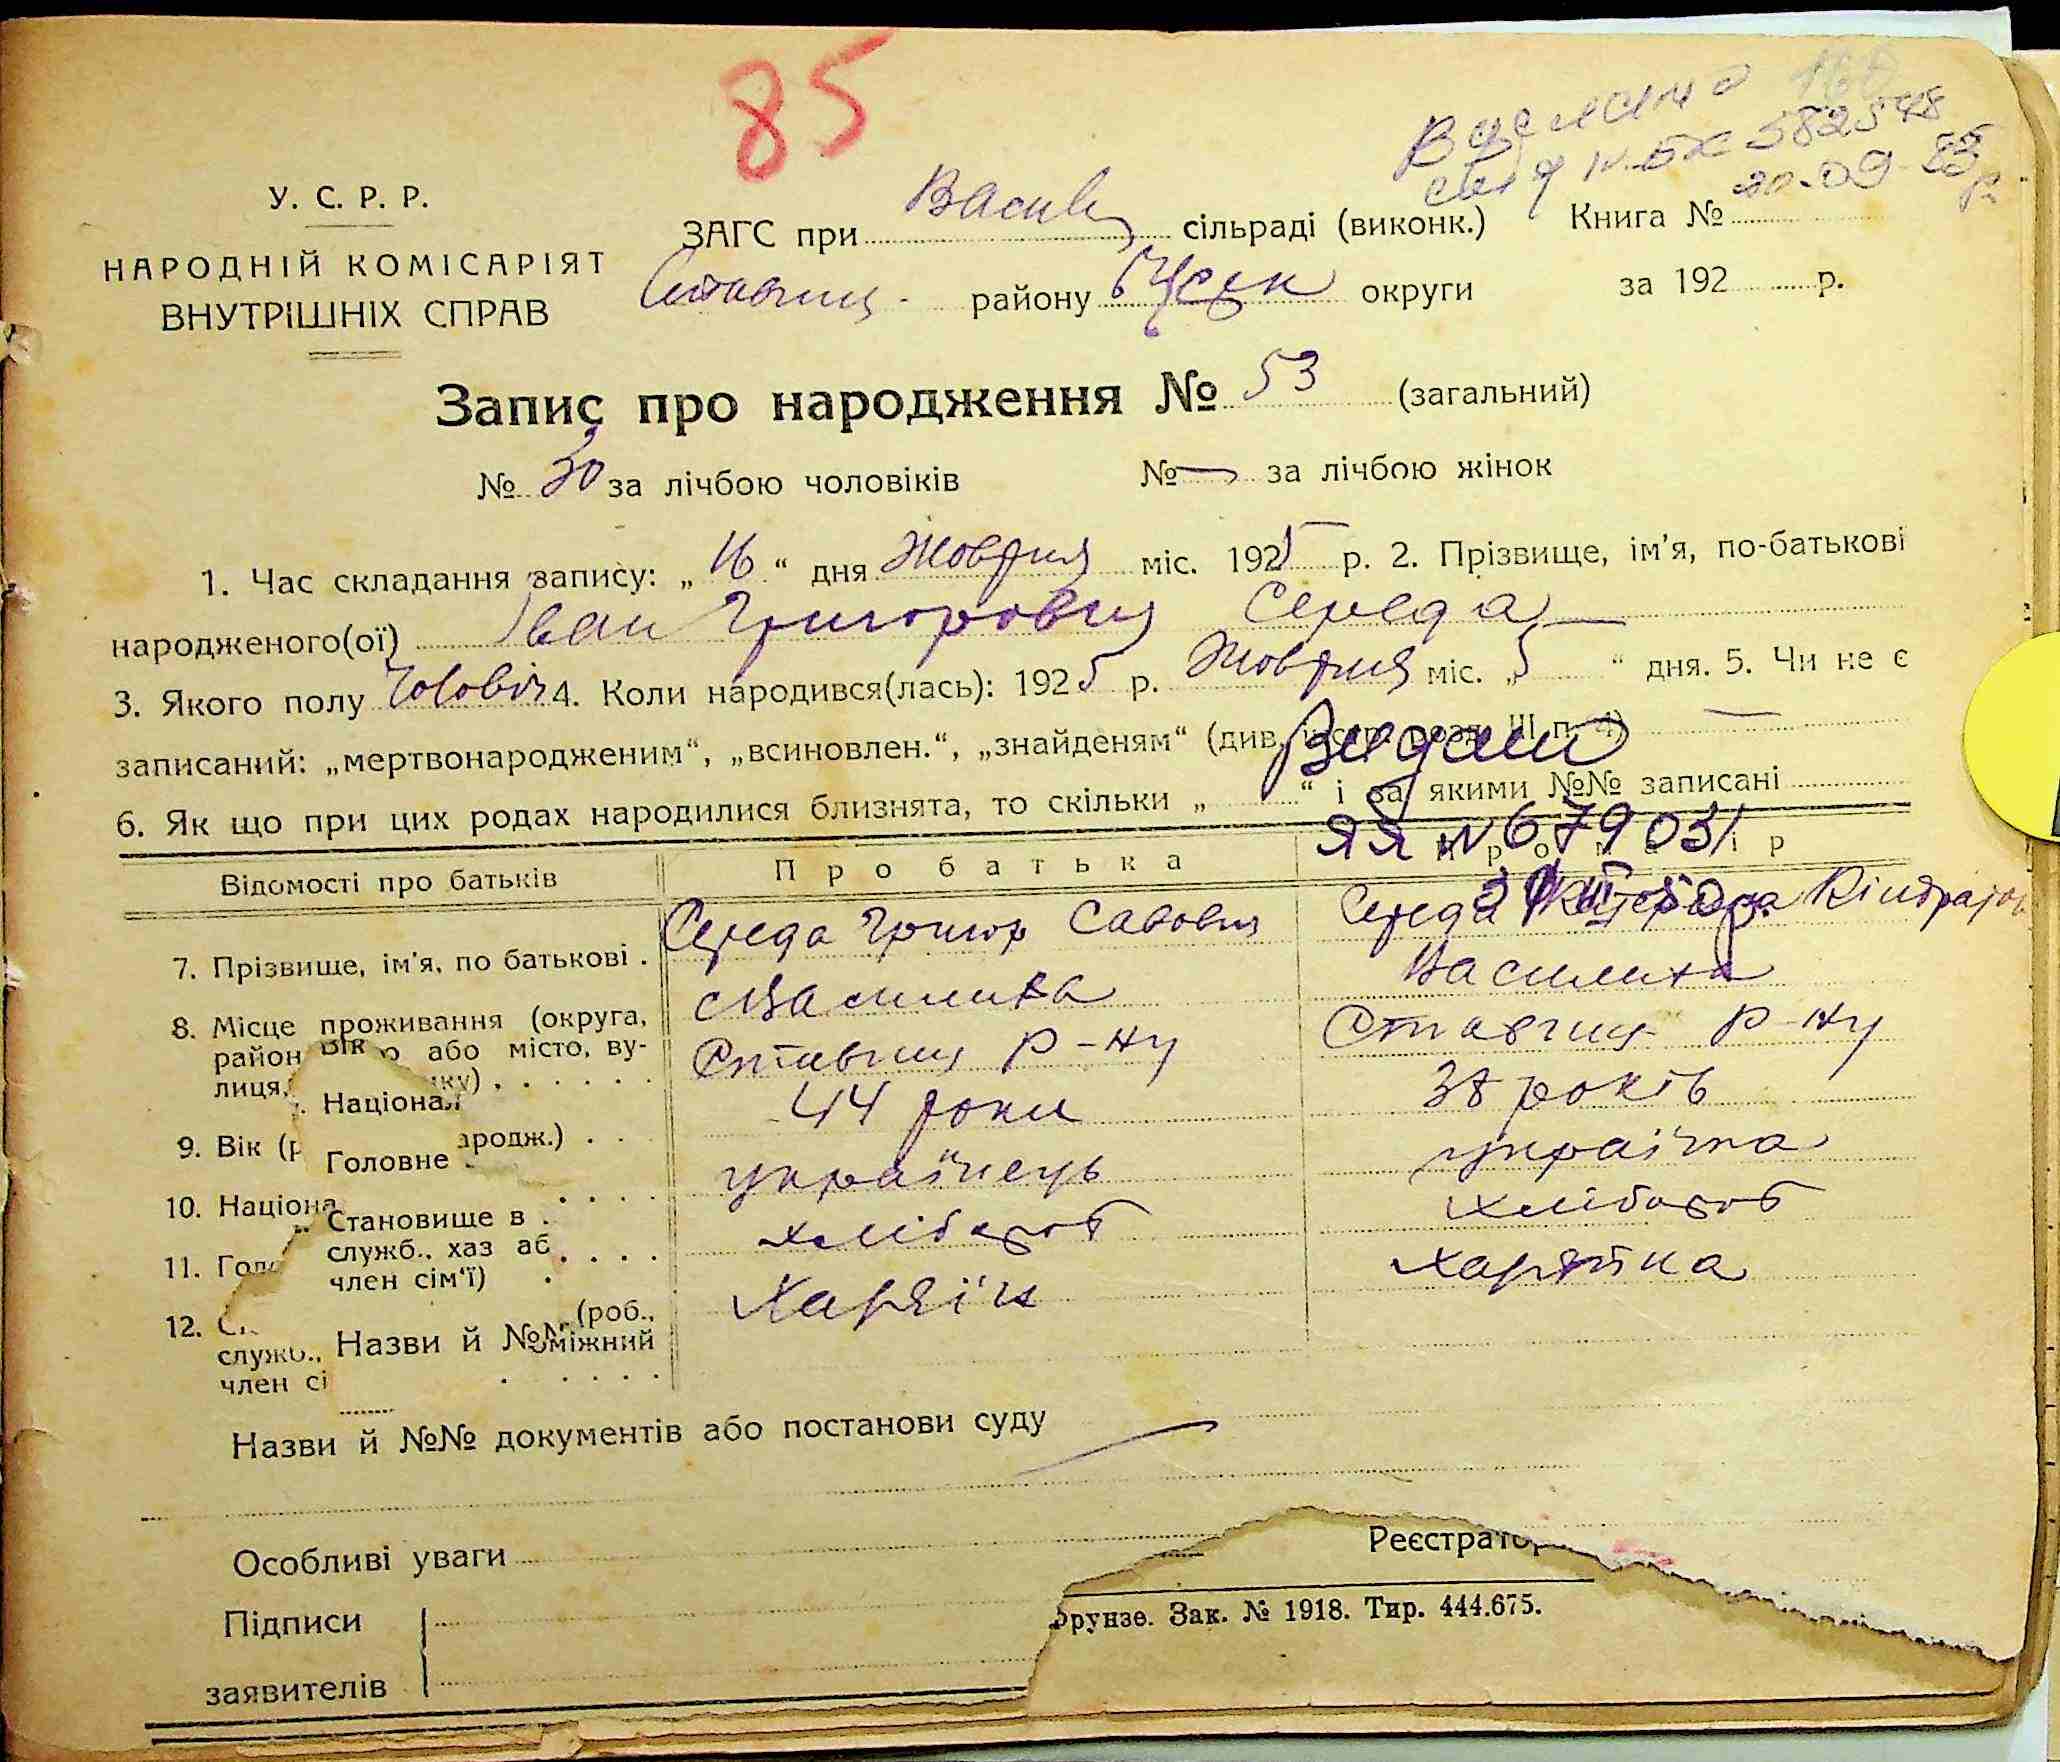 85
У. С. Р. Р.
НАРОДНІЙ КОМІСАРІЯТ
ВНУТРІШНІХ СПРАВ
ЗАГС при Васил сільраді (виконк.) Книга №
20-09-83р
района Б/Церк округи за 192 р.
Запис про народження № 53 (загальний)
№ 30 за лічбою чоловіків № за лічбою жінок
1. Час складання запису: „16“ дня Жовтня міс. 1925 р. 2. Прізвище, ім'я, по-батькові
народженого(ої) Іван Григорович Середа
3. Якого полу Чоловіч 4. Коли народився(лась): 1925 р. Жовтня міс. „5“ дня. 5. Чи не є
записаний: „мертвонародженим“, „всиновлен.“, „знайденям“ (див. розд. III п. 4)
6. Як що при цих родах народилися близнята, то скільки „ “ і за якими №№ записані
Видан
ЯЯ № 679031
Відомості про батьків Про батька
7. Прізвище, ім'я, по батькові . Середа Григор Савович Середа Кіндратов
8. Місце проживання (округа, с Василиха Василиха
район або місто, ву-
лиця, Ставищ р-ну Ставищ р-ну
Націонал
9. Вік ародж.) . . 44 роки 38 років
Головне
10. Націона українець українка
Становище в
служб., хаз аб
11. Голо хлібороб хлібороб
член сім'ї)
12. (роб., Харяїн харяйка
служб., Назви й №№ міжний
член сі
Назви й №№ документів або постанови суду
Особливі уваги
Реєстратор
Підписи
заявителів
Фрунзе. Зак. № 1918. Тир. 444.675.